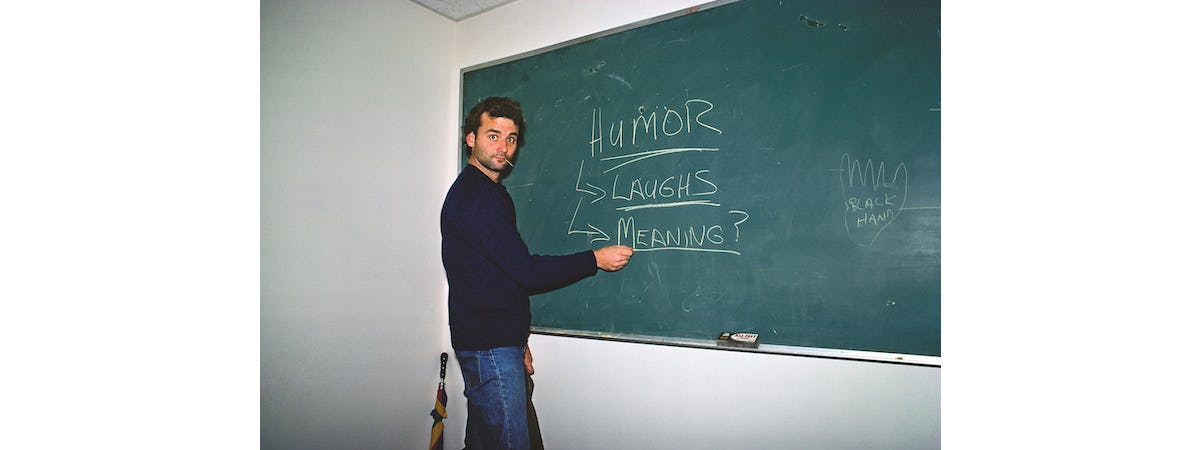 HUMOR
LAUGHS
MEANING?
BLACK
HAND